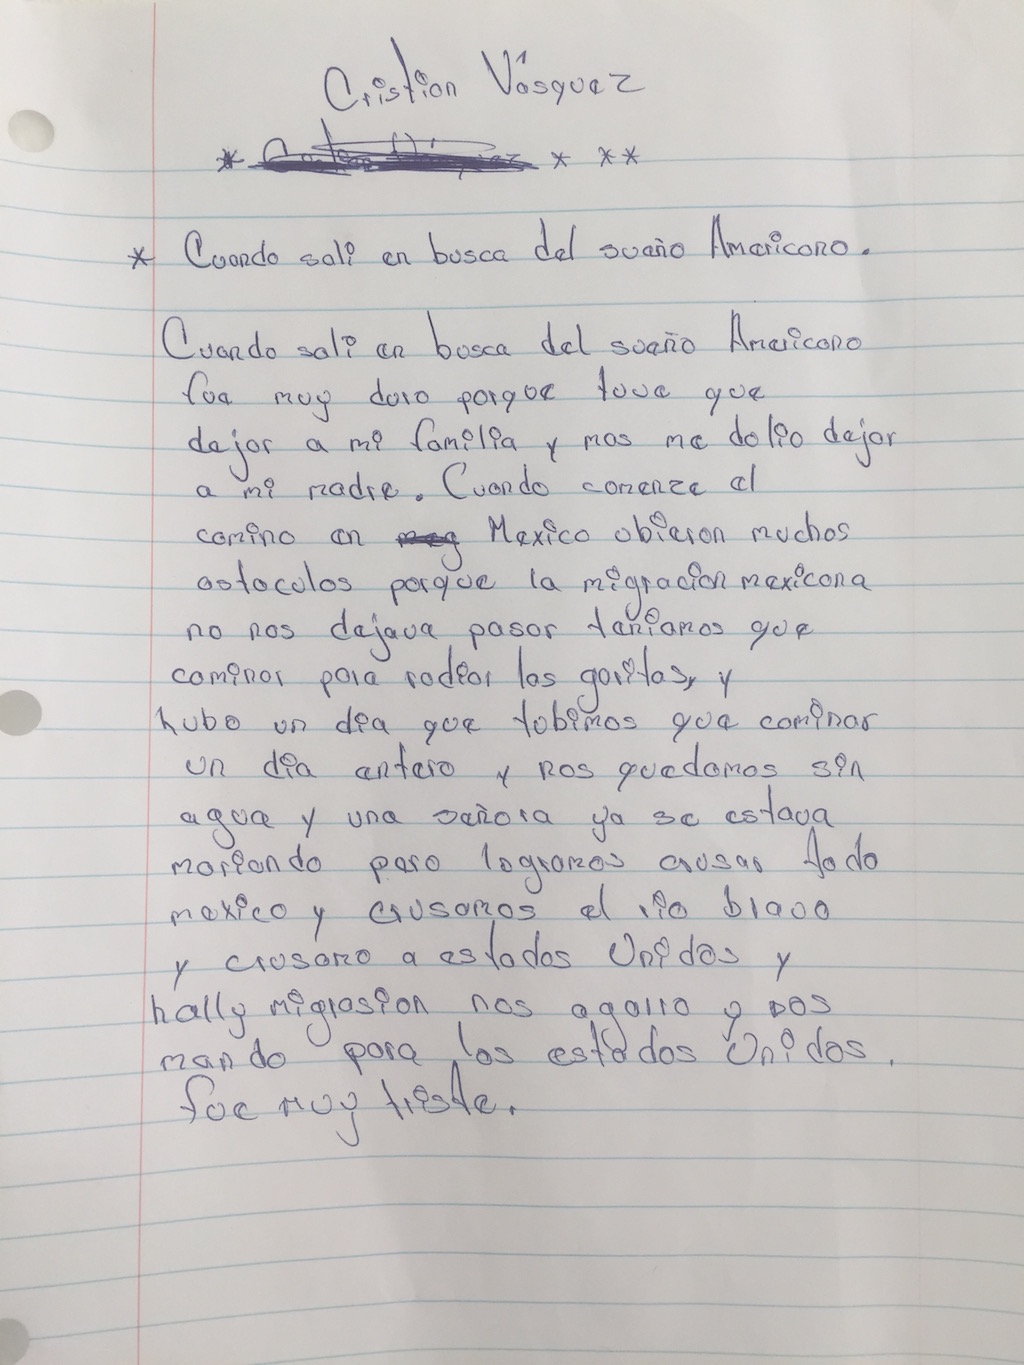 Cristian Vásquez
* * **
* Cuando sali en busca del sueño Americano.
Cuando sali en busca del sueño Americano
fue muy duro porque tuve que
dejar a mi familia y mas me dolio dejar
a mi madre. Cuando comenze el
camino en Mexico obieron muchos
ostaculos porque la migracion mexicana
no nos dejava pasar teniamos que
caminar para rodiar las garitas, y
hubo un dia que tubimos que caminar
un dia entero y nos quedamos sin
agua y una señora ya se estava
moriendo pero logramos crusar todo
mexico y crusamos el rio bravo
y crusamo a estados Unidos y
hally migrasion nos agarro y nos
mando para los estados Unidos.
fue muy triste.